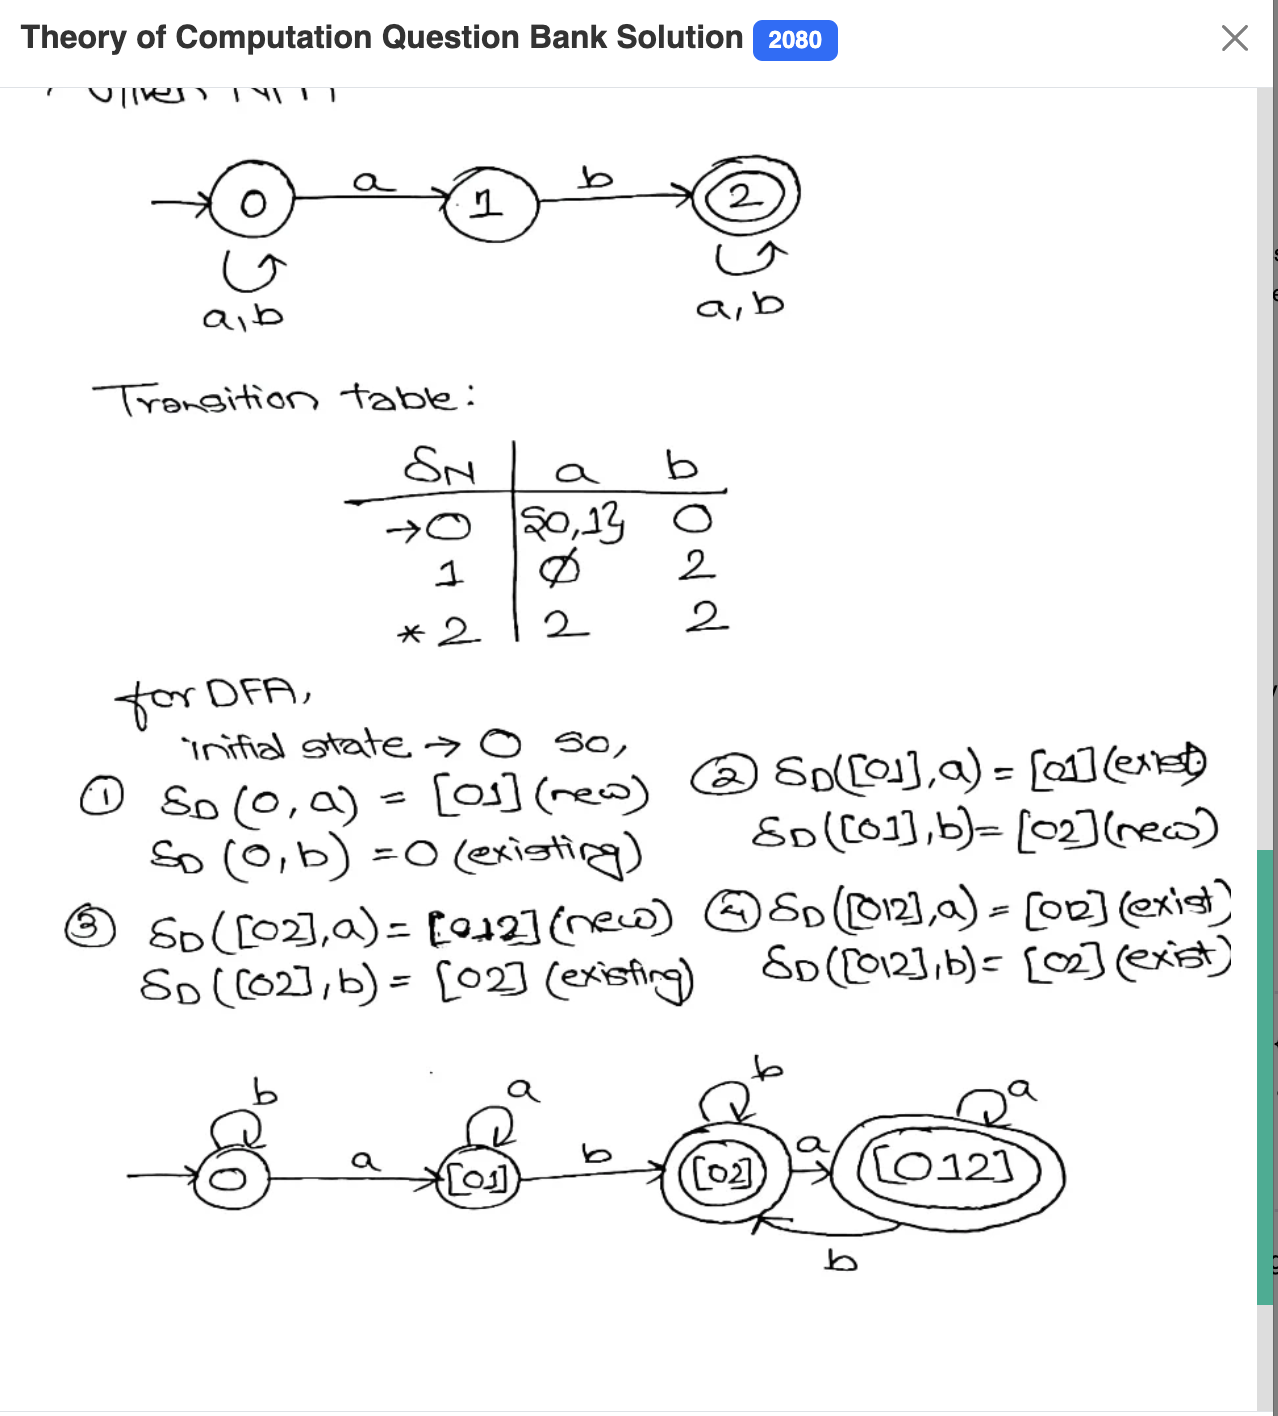 Theory of Computation Question Bank Solution 2080
a b
0 1 2
a,b a,b
Transition table:
δN a b
→0 {0,1} 0
1 ∅ 2
*2 2 2
for DFA,
initial state → 0 so,
① δD(0,a) = [01](new)
δD(0,b) = 0 (existing)
② δD([01],a) = [01](exist)
δD([01],b) = [02](new)
③ δD([02],a) = [012](new)
δD([02],b) = [02] (existing)
④ δD([012],a) = [012] (exist)
δD([012],b) = [02] (exist)
b a b a
a b a
0 [01] [02] [012]
b